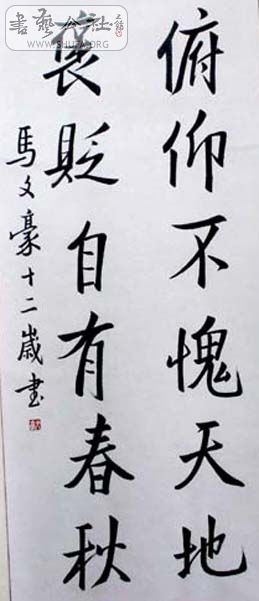 俯仰不愧天地
褒貶自有春秋
馬文豪十二歲书
書藝公社
WWW.SHUFA.ORG